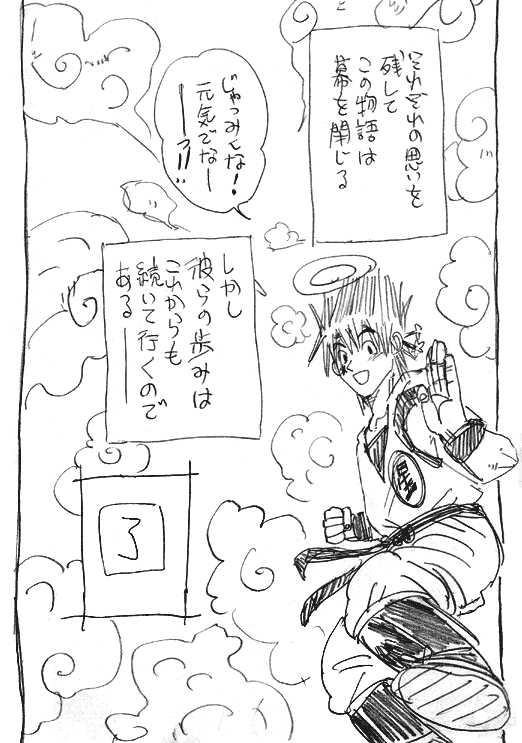 それぞれの思いを
残して
この物語は
幕を閉じる
じゃっみんな!
元気でなー
ーーっ!!
しかし
彼らの歩みは
これからも
続いて行くので
ある――
了